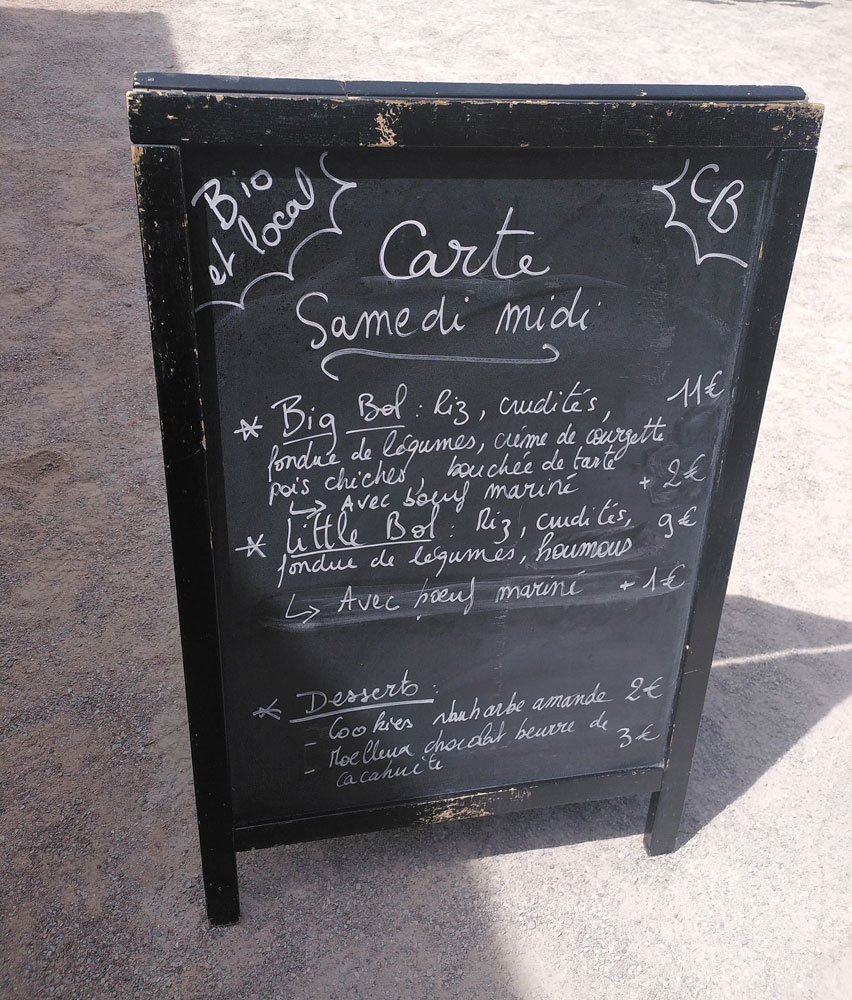 Bio
et local
CB
Carte
Samedi midi
* Big Bol : Riz, crudités, 11€
fondue de légumes, crème de courgette
pois chiches, bouchée de tarte
↳ Avec bœuf mariné + 2€
* Little Bol : Riz, crudités, 9€
fondue de légumes, houmous
↳ Avec bœuf mariné + 1€
* Desserts :
- Cookies rhubarbe amande 2€
- Moelleux chocolat beurre de 3€
cacahuète